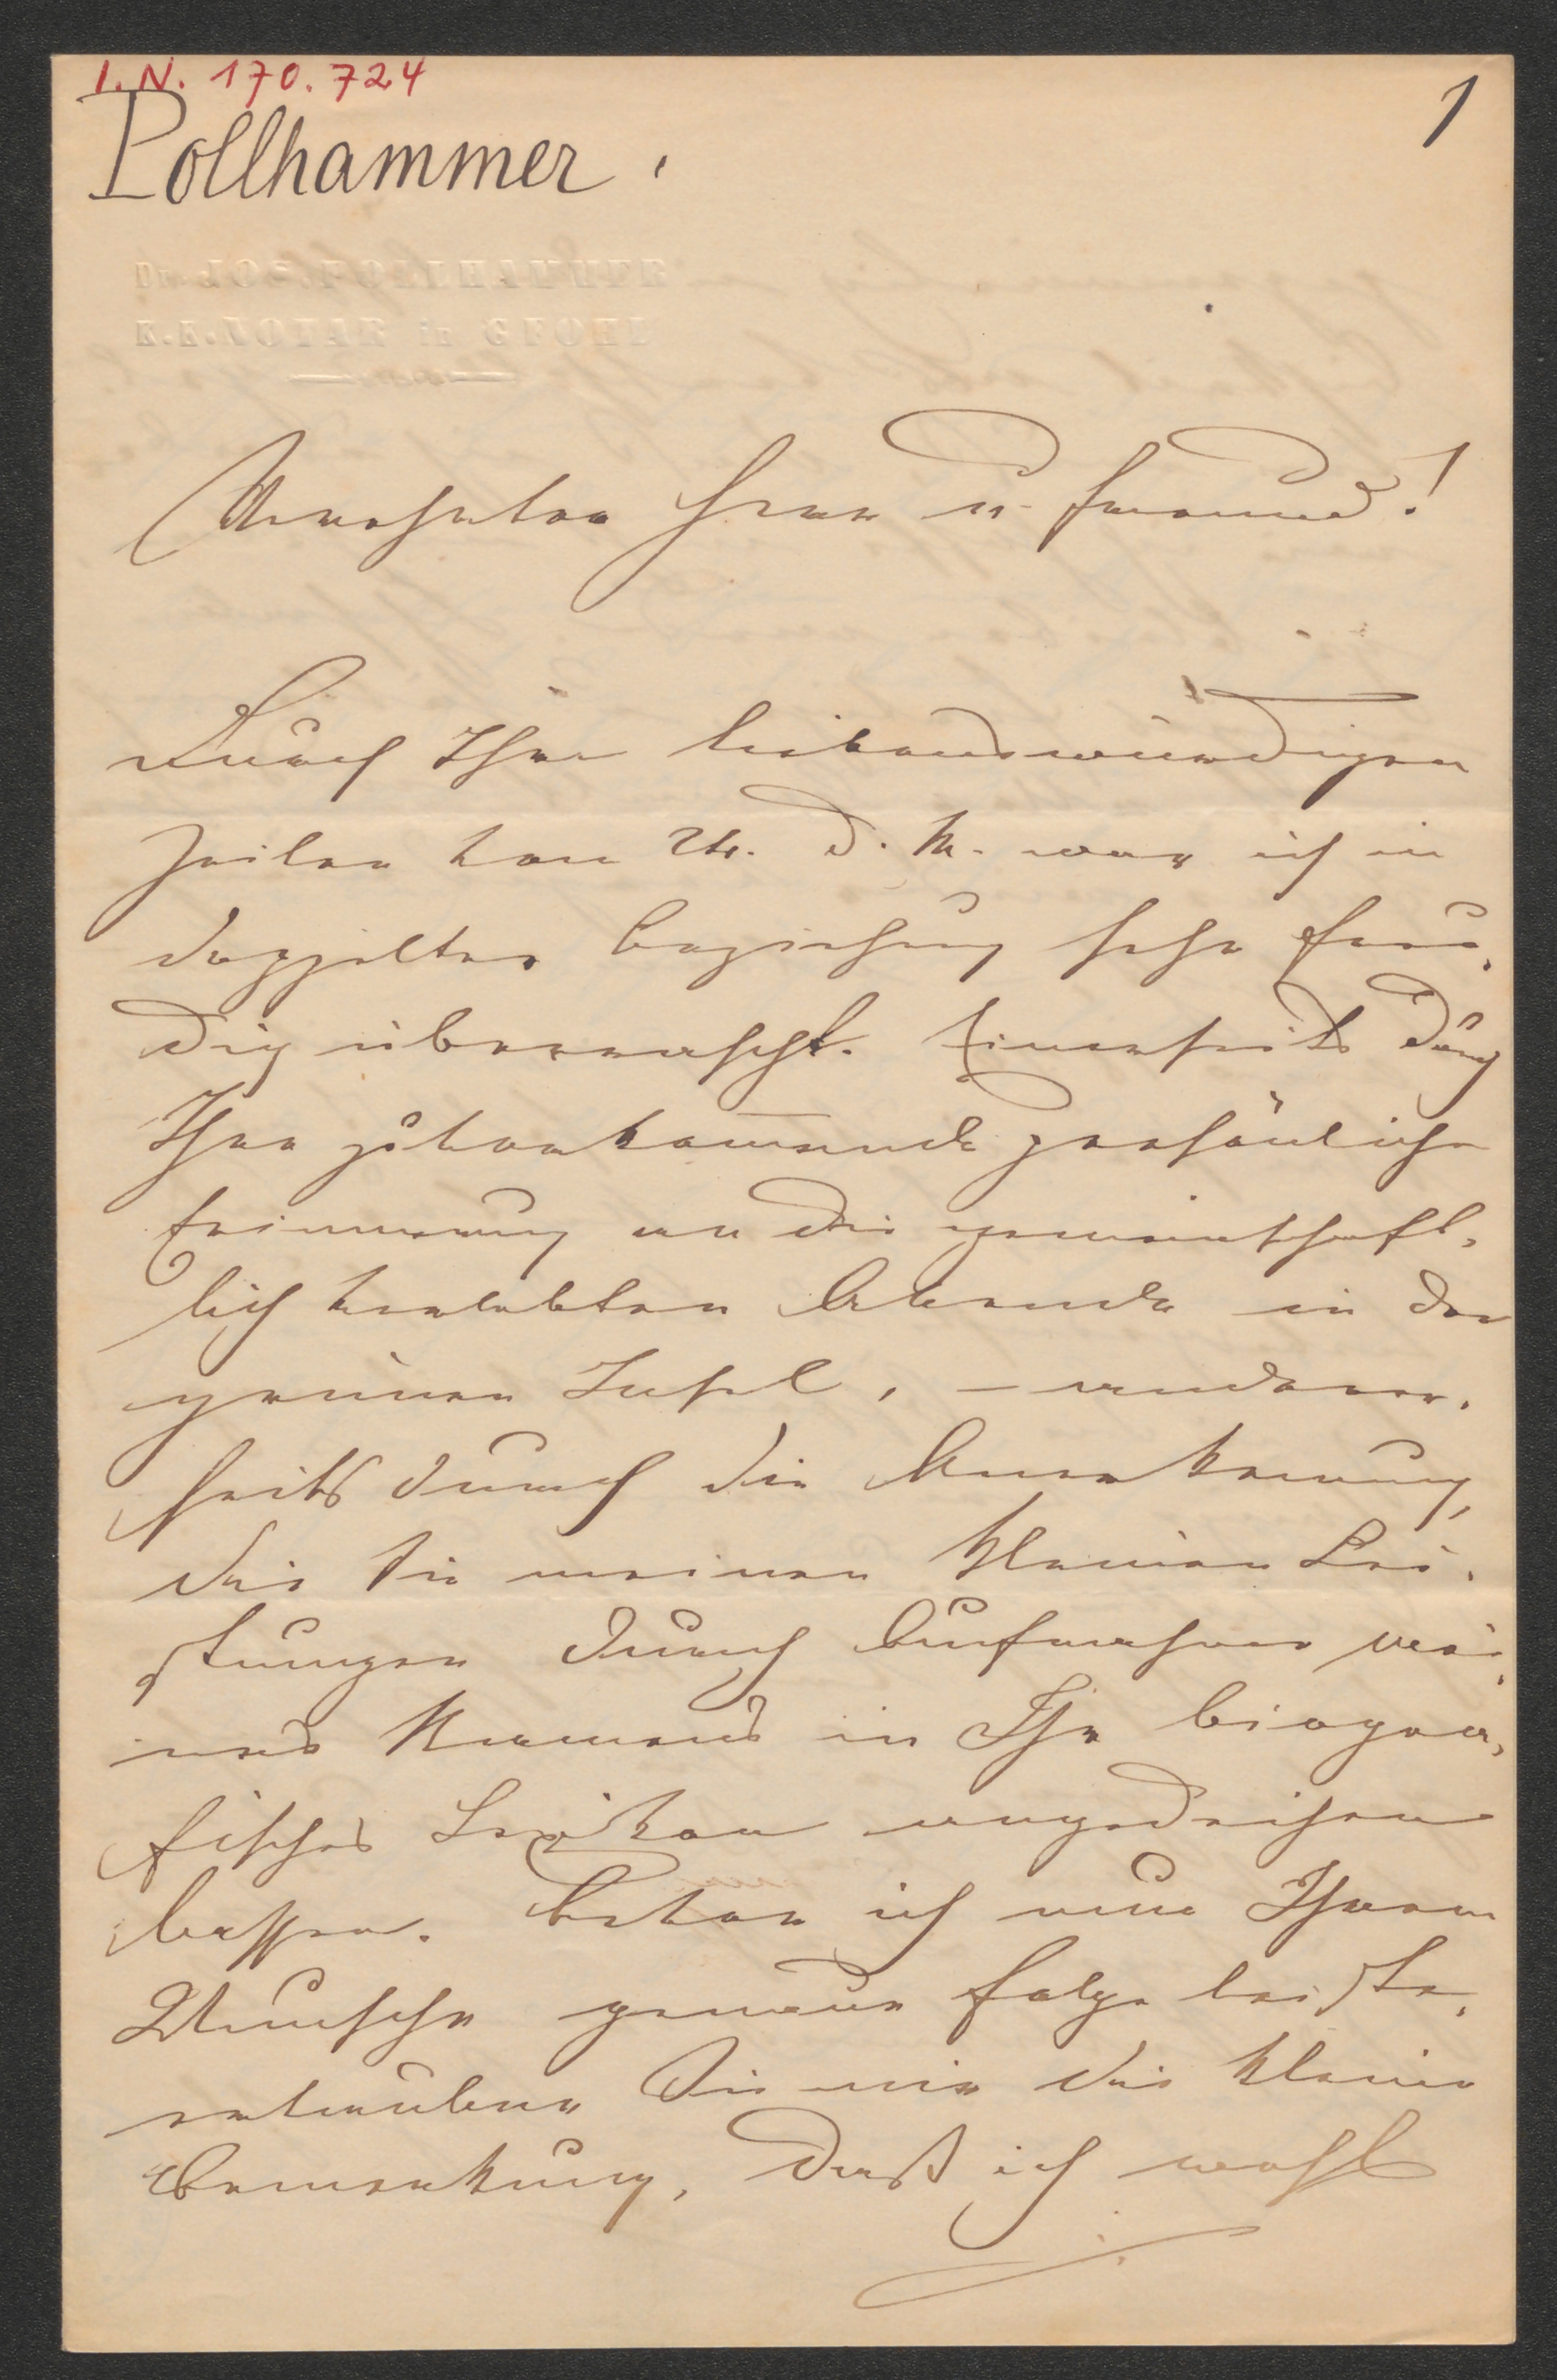 I.N. 170.724
1
Pollhammer.
Dr. JOS. POLLHAMMER
K.K. NOTAR in GFOEHL
Verehrter Herr u Freund!
Durch Ihre liebenswürdigen
Zeilen vom 24. d. M. war ich in
doppelter Beziehung sehr freu-
dig überrascht. Einerseits durch
Ihre zuvorkommende persönliche
Erinnerung an die gemeinschaft-
lich verlebten Abende in der
grünen Insel, – anderer-
seits durch die Anerkennung,
die Sie meinen kleinen Lei-
stungen durch Aufnahme mei-
nes Namens in Ihr biogra-
fisches Lexikon angedeihen
lassen. Bevor ich nun Ihrem
Wunsche genaue Folge leiste,
erlauben Sie mir die kleine
Bemerkung, daß ich wohl